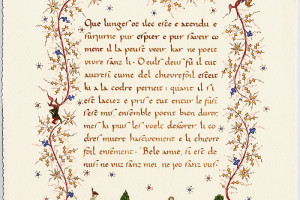 Que lunges ot ilec este e atendu e
surjurne pur espier e pur saveir co
ment il la peust veeir kar ne poeit
vivre sanz li · D euls deus fu il tut
autresi cume del chevrefoil esteit
ki a la codre perneit : quant il s i
est laciez e pris e tut entur le fust
s est mis, ensemble poent bien durer,
mes ki puis les volt desevrer li co
dres muert hastivement e li chevre
foil ensement · Bele amie, si est de
nus : ne vuz sanz mei, ne jeo sanz vus ·